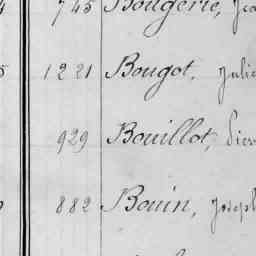 745 Bougerie,
1221 Bougot, Julie
929 Bouillot, Pier
882 Bouin, Joseph